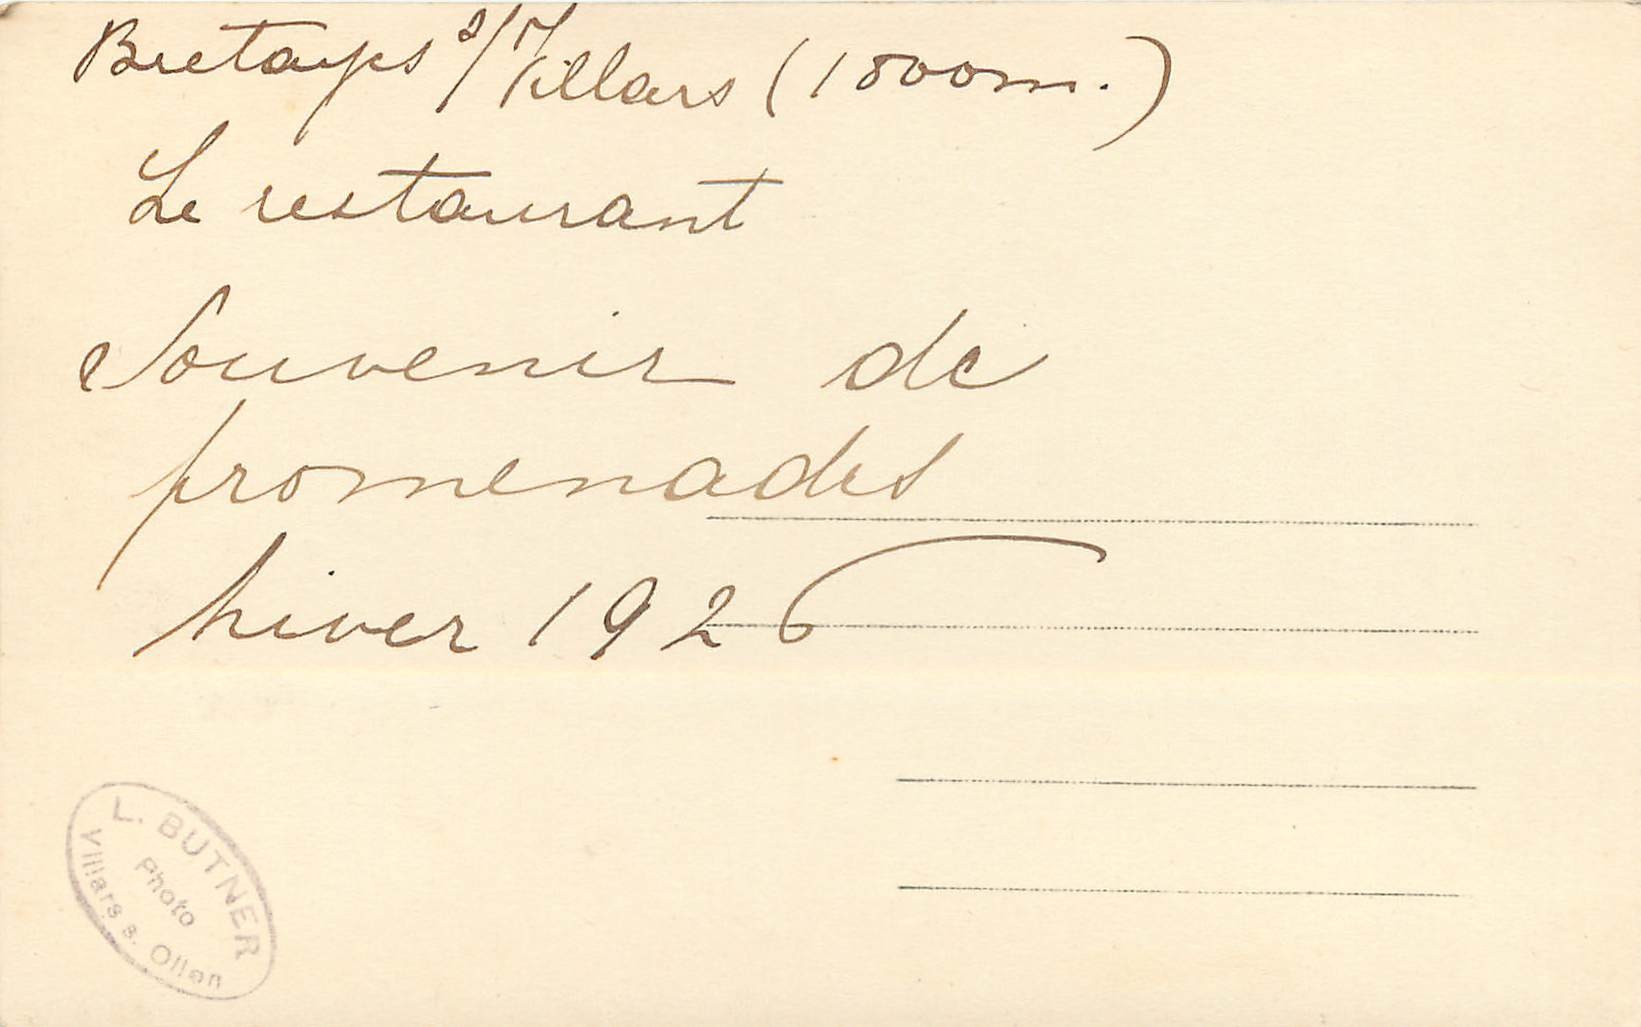 Bretayes s/Villars (1800m.)
Le restaurant
Souvenir de
promenades
hiver 1926
L. BUTNER
Photo
Villars s. Ollon